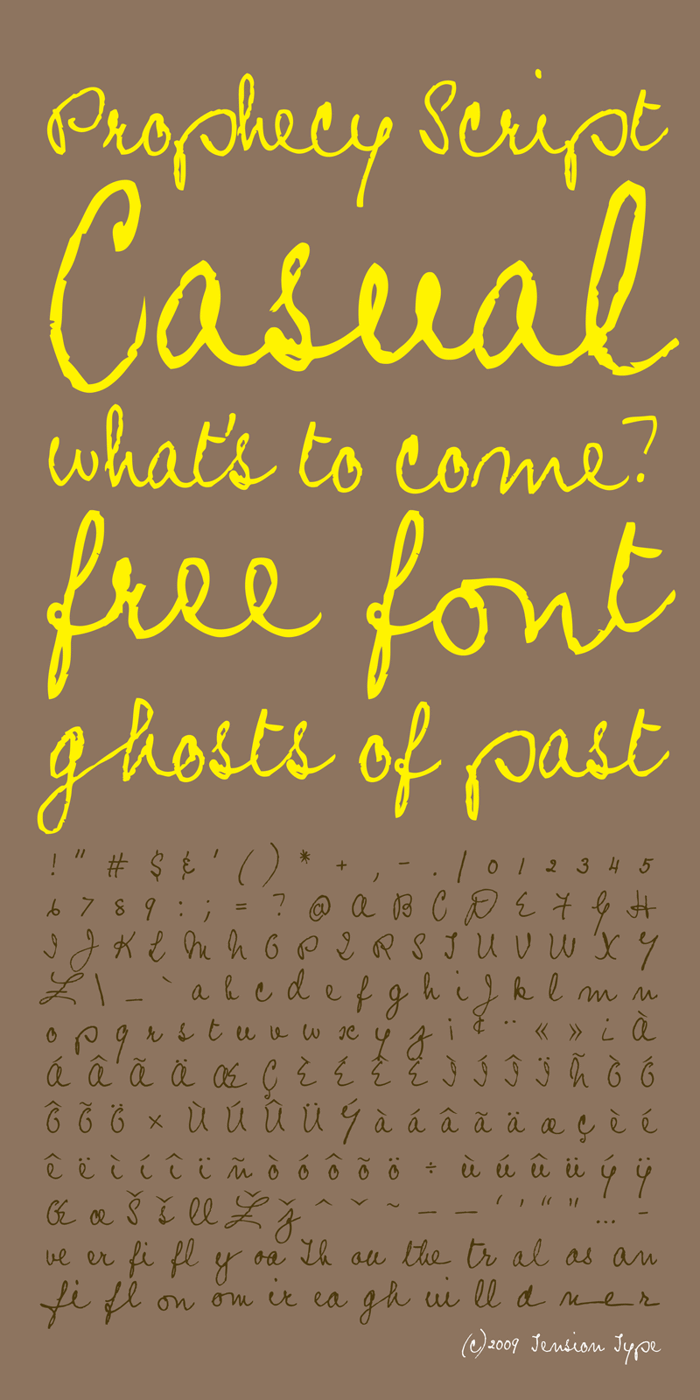 Prophecy Script
Casual
what's to come?
free font
ghosts of past
! " # $ & ' ( ) * + , - . / 0 1 2 3 4 5
6 7 8 9 : ; = ? @ A B C D E F G H
I J K L M N O P Q R S T U V W X Y
Z \ _ ` a b c d e f g h i j k l m n
o p q r s t u v w x y z ¡ ¢ ¨ « » ¿ À
Á Â Ã Ä Æ Ç È É Ê Ë Ì Í Î Ï Ñ Ò Ó
Ô Õ Ö × Ù Ú Û Ü Ý à á â ã ä æ ç è é
ê ë ì í î ï ñ ò ó ô õ ö ÷ ù ú û ü ý ÿ
Œ œ Š š ll Ž ž ˆ ˇ ˜ – — ‘ ’ “ ” … -
ve er fi fl y oa Th ou the tr al as an
fi fl on om ir ea gh ui ll d m e r
(c)2009 Tension Type